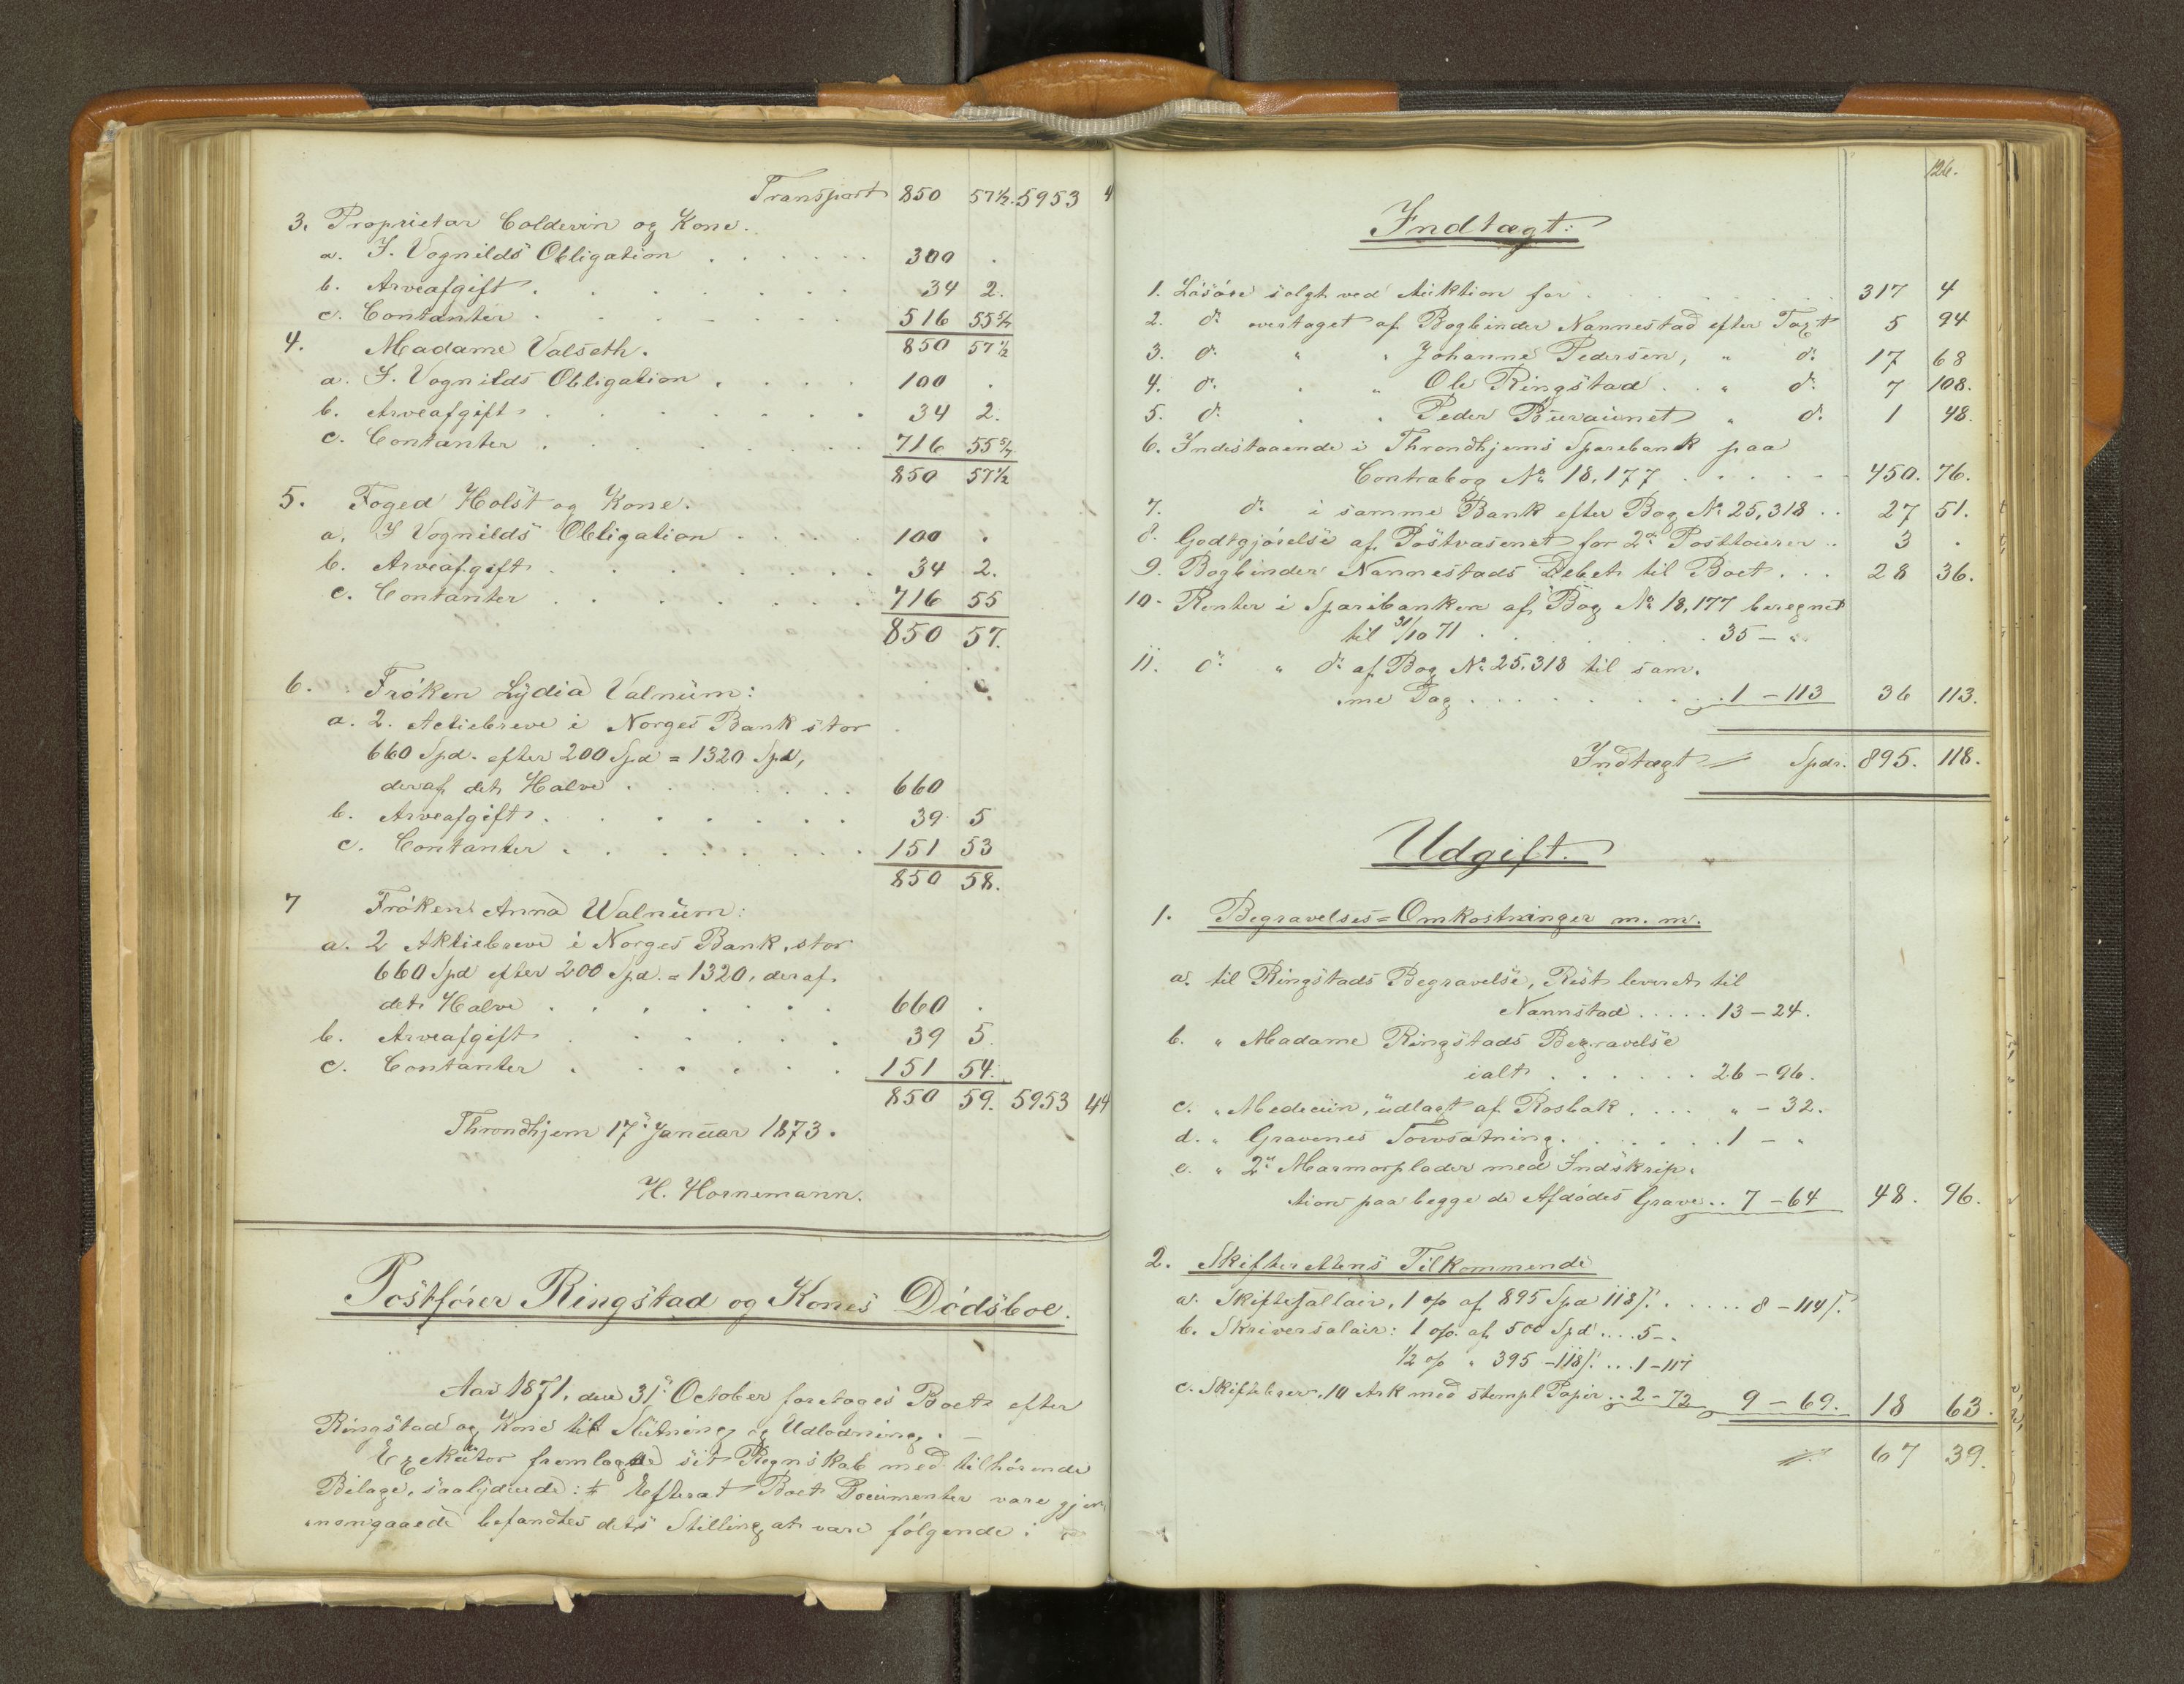 Transport 850 57½. 5953 4
3. Proprietær Coldevin og Kone.
a. I. Vognilds Obligation . . . . . . 300 .
b. Arveafgift . . . . . . . 34 2.
c. Contanter . . . . . . . 516 55½
850 57½
4. Madame Valseth.
a. I. Vognilds Obligation . . . . 100 .
b. Arveafgift . . . . . . . 34 2.
c. Contanter . . . . . . . 716 55½
850 57½
5. Foged Holst og Kone.
a. I Vognilds Obligation . . . . 100 .
b. Arveafgift . . . . . . . 34 2.
c. Contanter . . . . . . . 716 55
850 57.
6. Frøken Lydia Valnum:
a. 2. Actiebreve i Norges Bank stor
660 Spd. efter 200 Spd = 1320 Spd,
deraf det Halve . . . . . . 660
b. Arveafgift . . . . . . . 39 5
c. Contanter . . . . . . . 151 53
850 58.
7 Frøken Anna Walnum:
a. 2 Aktiebreve i Norges Bank, stor
660 Spd efter 200 Spd. = 1320, deraf
det Halve . . . . . . . 660 .
b. Arveafgift . . . . . . 39 5.
c. Contanter . . . . . . 151 54.
850 59. 5953 44
Throndhjem 17de Januar 1873.
H. Hornemann.
Postfører Ringstad og Kones Dødsboe.
Aar 1871, den 31te October foretoges Boet efter
Ringstad og Kone til Slutning og Udlodning. —
Exekutor fremlagde sit Regnskab med tilhørende
Bilage, saalydende: # Efterat Boets Documenter vare gjen
nemgaaede befandtes dets Stilling at være følgende:
126.
Indtægt:
1. Løsøre solgt ved Auktion for . . . . . 317 4
2. do overtaget af Bogbinder Nannestad efter Taxt 5 94
3. do " " Johanne Pedersen, " do 17 68
4. do . " Ole Ringstad . . " do 7 108.
5. do . . Peder Buraunet " do 1 48.
6. Indestaaende i Throndhjems Sparebank paa
Contrabog No 18,177 . . . . . 450. 76.
7. do i samme Bank efter Bog No 25,318 . . 27 51.
8. Godtgjørelse af Postvæsenet for 2de Posttoierer . . 3 .
9. Bogbinder Nannestads Debet til Boet . . . 28 36.
10. Renter i Sparebanken af Bog No 18,177 beregnet
til 31/10 71 . . . . . . . 35 — "
11. do " do af Bog No 25,318 til sam-
me Dag . . . . . . . 1 — 113 36 113.
Indtægt Spdr. 895. 118.
Udgift.
1. Begravelses=Omkostninger m. m.
a. til Ringstads Begravelse, Rest leveret til
Nannstad . . . . . 13 — 24.
b. " Madame Ringstads Begravelse
ialt . . . . . . 26 — 96.
c. " Medecin, udlagt af Rosbak . . . . " — 32.
d. " Gravenes Torvsætning . . . . . . 1 — "
e. " 2de Marmorplader med Indskrip-
tion paa begge de Afdødes Grave . . 7 — 64 48. 96.
2. Skifterettens Tilkommende
a. Skiftesallair, 1 o/o af 895 Spd 118 s. . . . . 8 — 114 s.
b. Skriversalair: 1 o/o. af 500 Spd . . . . 5 — "
½ o/o " 395 — 118 s. . . . 1 — 117
c. Skiftebrev, 10 Ark med stempl Papir . . 2 — 72 9 — 69. 18 63.
67 39.